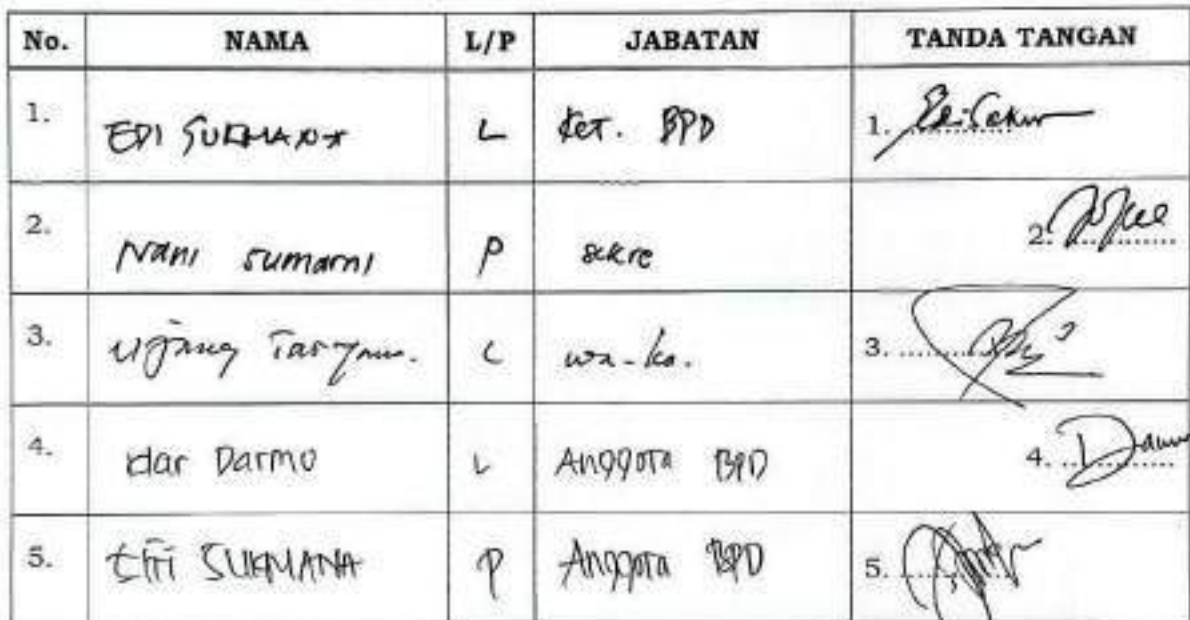 No. NAMA L/P JABATAN TANDA TANGAN
1. EDI SUKMANA L Ket. BPD 1.
2. Nani sumarni P sekre 2.
3. Ujang L wa-ka. 3.
4. Idar Darmo L Anggota BPD 4.
5. SUKMANA P Anggota BPD 5.